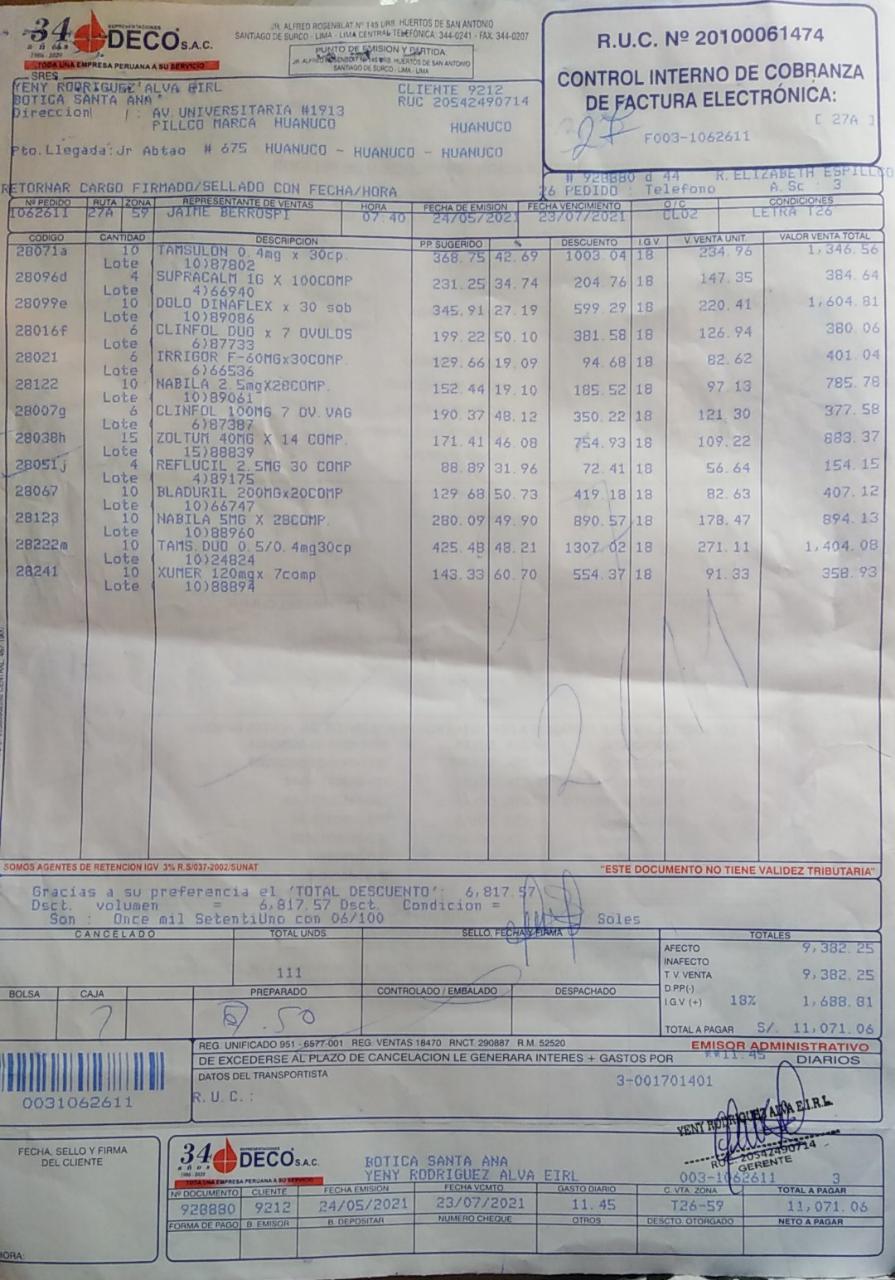 34 años 1986 - 2020 REPRESENTACIONES DECO S.A.C.
TODA UNA EMPRESA PERUANA A SU SERVICIO
JR. ALFRED ROSENBLAT Nº 145 URB. HUERTOS DE SAN ANTONIO
SANTIAGO DE SURCO - LIMA - LIMA CENTRAL TELEFÓNICA: 344-0241 - FAX 344-0207
PUNTO DE EMISION Y PARTIDA
JR. ALFRED ROSENBLAT Nº 145 URB. HUERTOS DE SAN ANTONIO
SANTIAGO DE SURCO - LIMA - LIMA
R.U.C. Nº 20100061474
CONTROL INTERNO DE COBRANZA
DE FACTURA ELECTRÓNICA:
[ 27A ]
27
F003-1062611
SRES
YENY RODRIGUEZ ALVA EIRL
BOTICA SANTA ANA
CLIENTE 9212
RUC 20542490714
Direccion : AV. UNIVERSITARIA #1913
PILLCO MARCA HUANUCO
HUANUCO
Pto. Llegada: Jr Abtao # 675 HUANUCO - HUANUCO - HUANUCO
# 928880 d 44 R. ELIZABETH
RETORNAR CARGO FIRMADO/SELLADO CON FECHA/HORA
26 PEDIDO : Telefono A. Sc : 3
Nº PEDIDO RUTA ZONA REPRESENTANTE DE VENTAS HORA FECHA DE EMISION FECHA VENCIMIENTO O/C CONDICIONES
1062611 27A 59 JAIME BERROSPI 07.40 24/05/2021 23/07/2021 CL02 LETRA T26
CODIGO CANTIDAD DESCRIPCION P.P. SUGERIDO % DESCUENTO I.G.V V. VENTA UNIT. VALOR VENTA TOTAL
28071a 10 TAMSULON 0.4mg x 30cp. 368.75 42.69 1003.04 18 234.96 1,346.56
Lote ( 10)87802
28096d 4 SUPRACALM 1G X 100COMP 231.25 34.74 204.76 18 147.35 384.64
Lote ( 4)66940
28099e 10 DOLO DINAFLEX x 30 sob 345.91 27.19 599.29 18 220.41 1,604.81
Lote ( 10)89086
28016f 6 CLINFOL DUO x 7 OVULOS 199.22 50.10 381.58 18 126.94 380.06
Lote ( 6)87733
28021 6 IRRIGOR F-60MGx30COMP. 129.66 19.09 94.68 18 82.62 401.04
Lote ( 6)66536
28122 10 NABILA 2.5mgX28COMP. 152.44 19.10 185.52 18 97.13 785.78
Lote ( 10)89061
28007g 6 CLINFOL 100MG 7 OV.VAG 190.37 48.12 350.22 18 121.30 377.58
Lote ( 6)87387
28038h 15 ZOLTUM 40MG X 14 COMP. 171.41 46.08 754.93 18 109.22 883.37
Lote ( 15)88839
28051j 4 REFLUCIL 2.5MG 30 COMP 88.89 31.96 72.41 18 56.64 154.15
Lote ( 4)89175
28067 10 BLADURIL 200MGx20COMP 129.68 50.73 419.18 18 82.63 407.12
Lote ( 10)66747
28123 10 NABILA 5MG X 28COMP. 280.09 49.90 890.57 18 178.47 894.13
Lote ( 10)88960
28222m 10 TAMS.DUO 0.5/0.4mg30cp 425.48 48.21 1307.02 18 271.11 1,404.08
Lote ( 10)24824
28241 10 XUMER 120mgx 7comp 143.33 60.70 554.37 18 91.33 358.93
Lote ( 10)88894
SOMOS AGENTES DE RETENCION IGV 3% R.S/037-2002/SUNAT
"ESTE DOCUMENTO NO TIENE VALIDEZ TRIBUTARIA"
Gracias a su preferencia el 'TOTAL DESCUENTO': 6,817.57
Dsct. volumen = 6,817.57 Dsct. Condicion =
Son : Once mil SetentiUno con 06/100 Soles
CANCELADO TOTAL UNDS SELLO, FECHA Y FIRMA TOTALES
111
AFECTO 9,382.25
INAFECTO
T.V. VENTA 9,382.25
D.PP(-)
I.G.V (+) 18% 1,688.81
TOTAL A PAGAR S/. 11,071.06
BOLSA CAJA PREPARADO CONTROLADO / EMBALADO DESPACHADO
REG. UNIFICADO 951 - 6577-001 REG. VENTAS 18470 RNCT. 290887 R.M. 52520
EMISOR ADMINISTRATIVO
DE EXCEDERSE AL PLAZO DE CANCELACION LE GENERARA INTERES + GASTOS POR **11.45 DIARIOS
DATOS DEL TRANSPORTISTA
3-001701401
R.U.C.:
0031062611
YENY RODRIGUEZ ALVA E.I.R.L.
RUC. 20542490714
GERENTE
FECHA, SELLO Y FIRMA
DEL CLIENTE
HORA:
34 años 1986 - 2020 REPRESENTACIONES DECO S.A.C.
TODA UNA EMPRESA PERUANA A SU SERVICIO
BOTICA SANTA ANA
YENY RODRIGUEZ ALVA EIRL
003-1062611 3
Nº DOCUMENTO CLIENTE FECHA EMISION FECHA VCMTO GASTO DIARIO C. VTA. ZONA TOTAL A PAGAR
928880 9212 24/05/2021 23/07/2021 11.45 T26-59 11,071.06
FORMA DE PAGO B. EMISOR B. DEPOSITAR NUMERO CHEQUE OTROS DESCTO. OTORGADO NETO A PAGAR